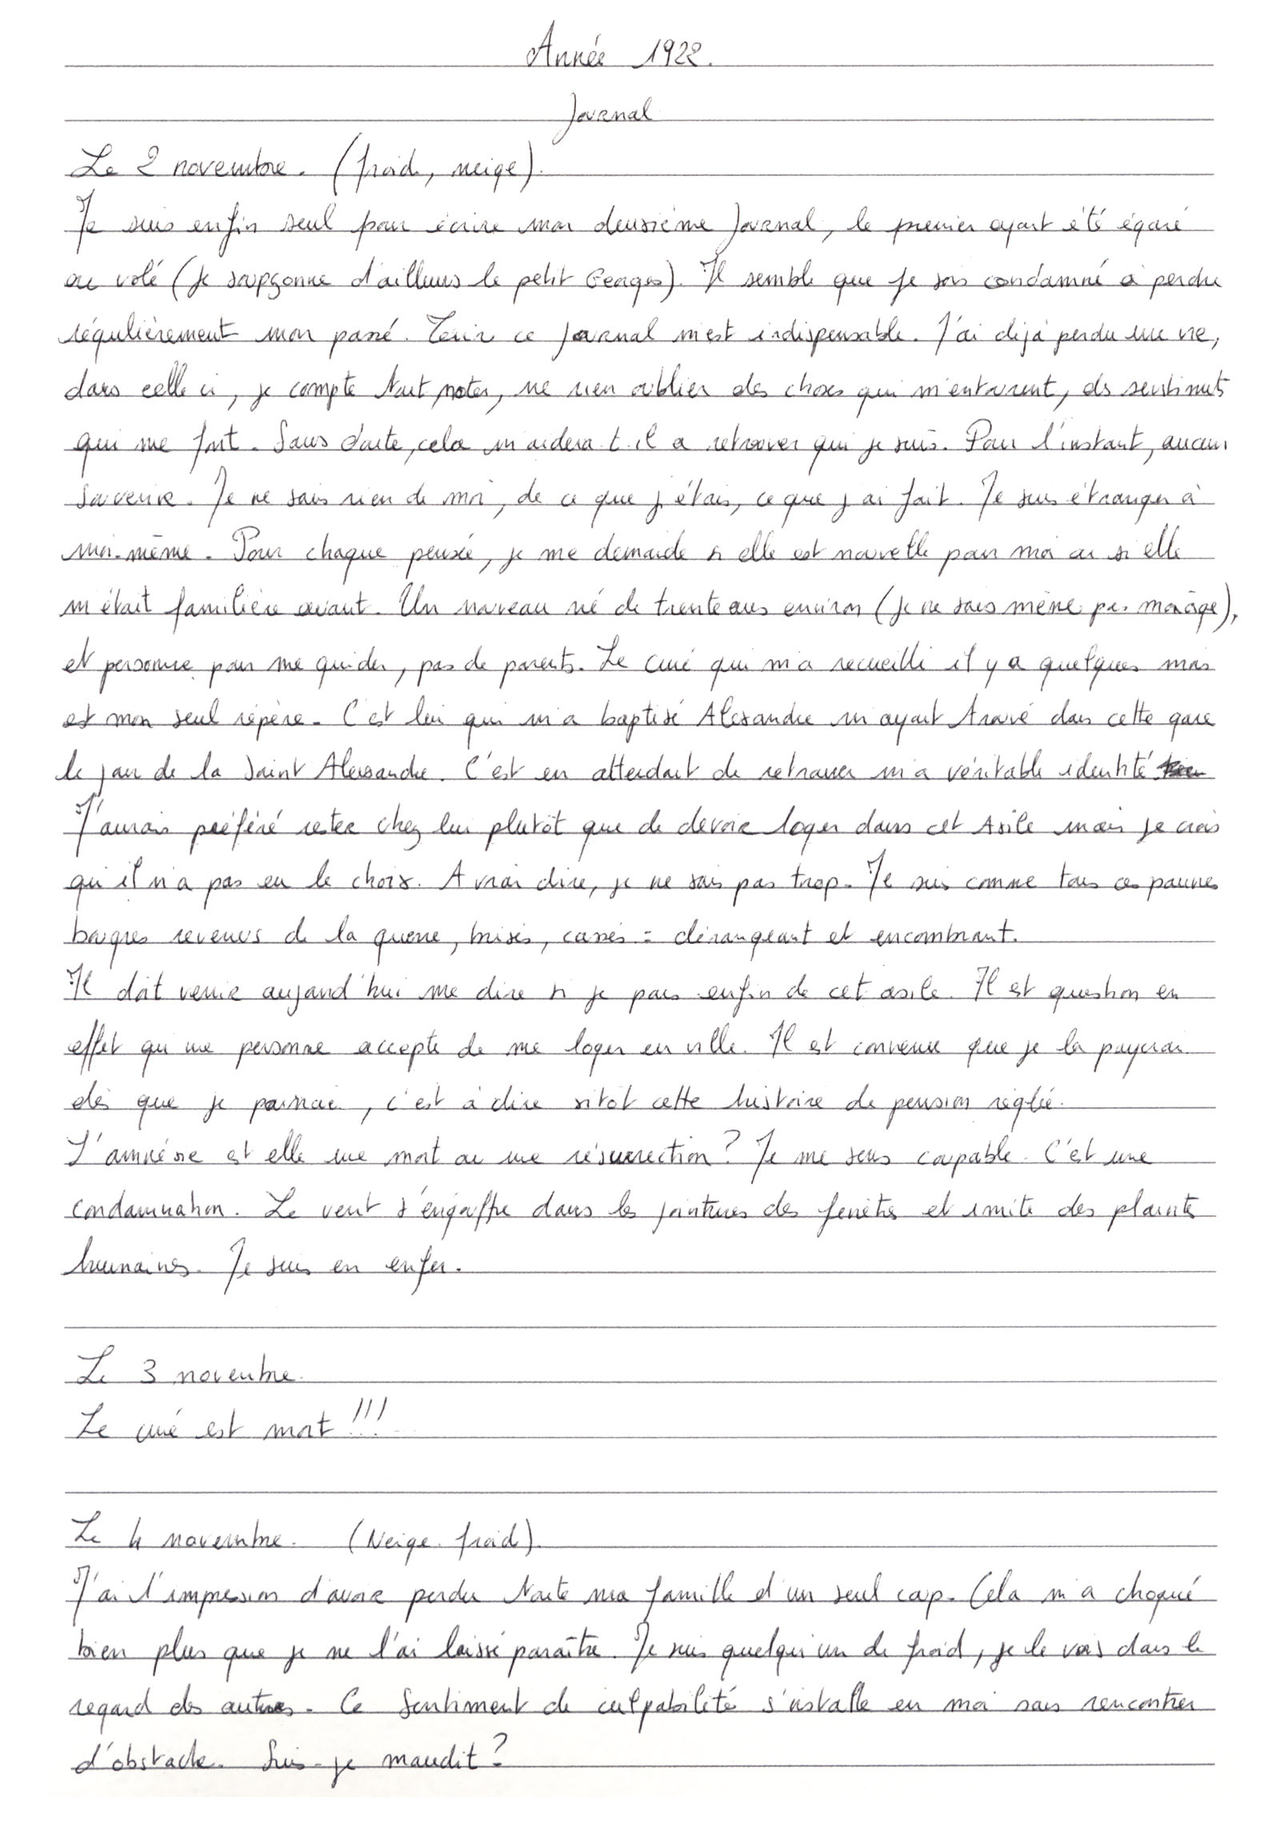 Année 1922.
Journal
Le 2 novembre. (froid, neige).
Je suis enfin seul pour écrire mon deuxième Journal, le premier ayant été égaré
ou volé (je soupçonne d'ailleurs le petit Georges). Il semble que je sois condamné à perdre
régulièrement mon passé. Tenir ce journal m'est indispensable. J'ai déjà perdu une vie,
dans celle ci, je compte tout noter, ne rien oublier des choses qui m'entourent, des sentiments
qui me font. Sans doute, cela m'aidera t.il a retrouver qui je suis. Pour l'instant, aucun
souvenir. Je ne sais rien de moi, de ce que j'étais, ce que j'ai fait. Je suis étranger à
moi-même. Pour chaque pensée, je me demande si elle est nouvelle pour moi ou si elle
m'était familière avant. Un nouveau né de trente ans environ (je ne sais même pas mon âge),
et personne pour me guider, pas de parents. Le curé qui m'a recueilli il y a quelques mois
est mon seul repère. C'est lui qui m'a baptisé Alexandre m'ayant trouvé dans cette gare
le jour de la Saint Alexandre. C'est en attendant de retrouver ma véritable identité
J'aurais préféré rester chez lui plutôt que de devoir loger dans cet Asile mais je crois
qu'il n'a pas eu le choix. A vrai dire, je ne sais pas trop. Je suis comme tous ces pauvres
bougres revenus de la guerre, brisés, cassés = dérangeant et encombrant.
Il doit venir aujourd'hui me dire si je pars enfin de cet asile. Il est question en
effet qu'une personne accepte de me loger en ville. Il est convenu que je la payerai
dès que je pourrai, c'est à dire sitot cette histoire de pension réglée.
L'amnésie est elle une mort ou une résurrection? Je me sens coupable. C'est une
condamnation. Le vent s'engouffre dans les jointures des fenêtres et imite des plaintes
humaines. Je suis en enfer.
Le 3 novembre.
Le curé est mort!!!
Le 4 novembre. (Neige. froid).
J'ai l'impression d'avoir perdu toute ma famille d'un seul coup. Cela m'a choqué
bien plus que je ne l'ai laissé paraître. Je suis quelqu'un de froid, je le vois dans le
regard des autres. Ce sentiment de culpabilité s'installe en moi sans rencontrer
d'obstacle. Suis-je maudit?